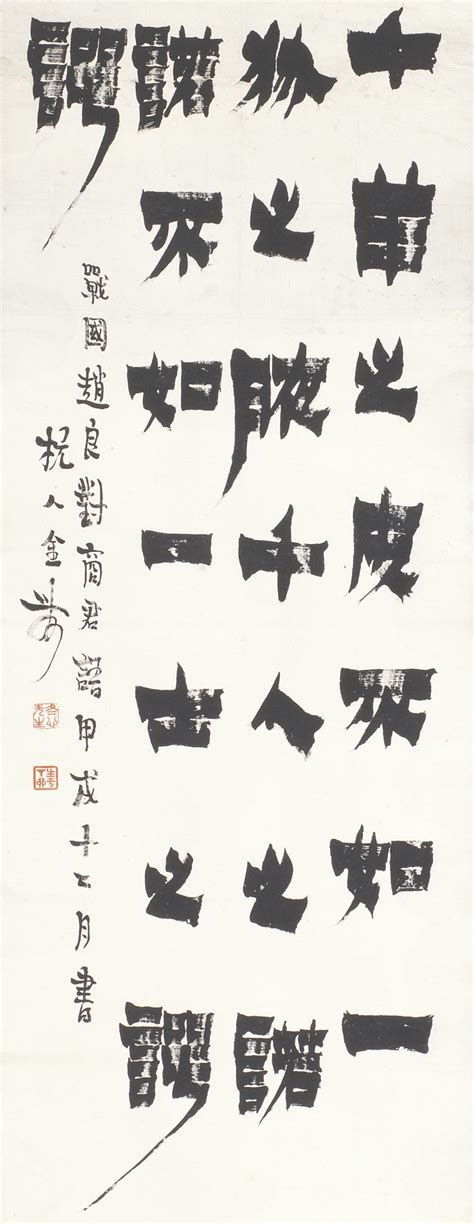 千羊之皮不如一
狐之腋千人之諾
諾不如一士之諤
諤
戰國趙良對商君語甲戌十二月書
杭人金